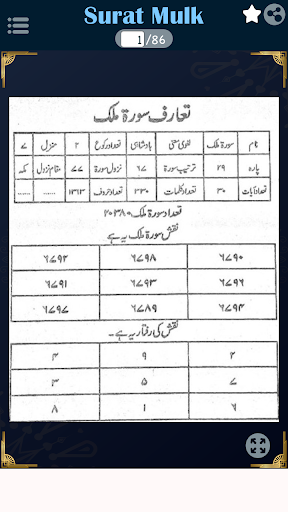 Surat Mulk
1/86
تعارف سورۃ ملک
نام سورۃ ملک لغوی معنی بادشاہی تعداد رکوع ۲ منزل ۷
پارہ ۲۹ ترتیب سورۃ ۶۷ نزول سورۃ ۷۷ مقام نزول مکہ
تعداد آیات ۳۰ تعداد کلمات ۳۳۰ تعداد حروف ۱۳۱۳ ...... ......
تعداد سورۃ ملک ۲۰۳۸۰
نقش سورۃ ملک یہ ہے
۶۷۹۰ ۶۷۹۸ ۶۷۹۲
۶۷۹۶ ۶۷۹۳ ۶۷۹۱
۶۷۹۴ ۶۷۸۹ ۶۷۹۷
نقش کی رفتار یہ ہے۔
۲ ۹ ۴
۷ ۵ ۳
۶ ۱ ۸